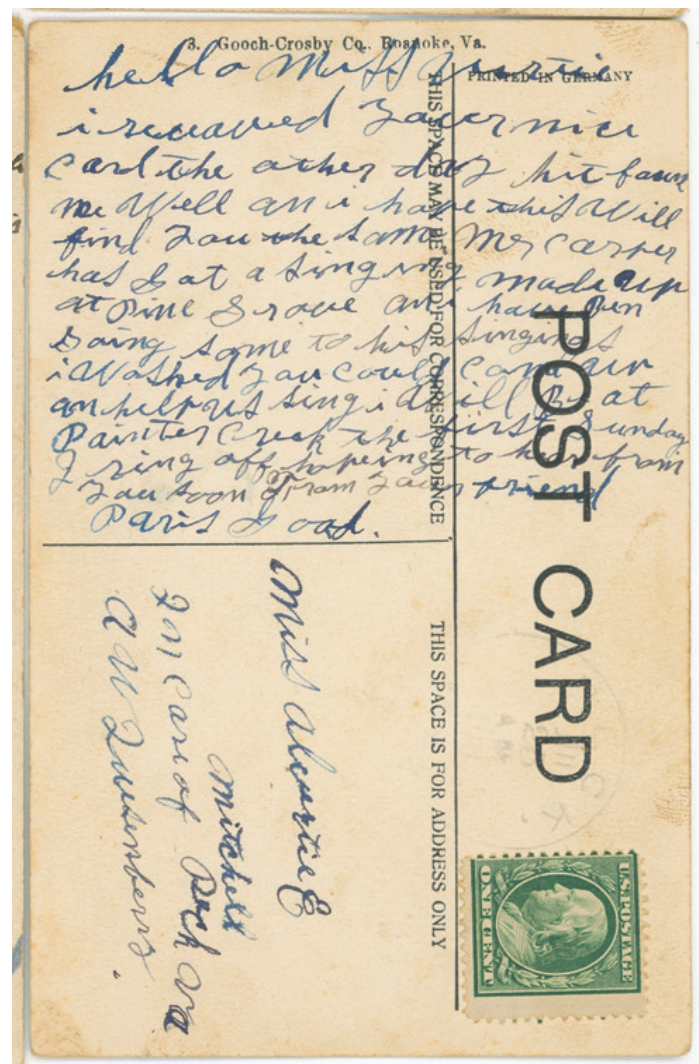 3. Gooch-Crosby Co., Roanoke, Va.
PRINTED IN GERMANY
hello Miss
i receaved your nice
card the other day hit faun
me Well an i hope this Will
find you the same Mr Carper
has Got a singing made up
at Pine Grove an i have Ben
Going some to his singings
i Wished you could come up
an help us sing i Will Be at
Painter Creek the first Sunday
I ring off hopeing to hear from
you soon From your friend
Paris Good.
THIS SPACE MAY BE USED FOR CORRESPONDENCE
POST CARD
THIS SPACE IS FOR ADDRESS ONLY
Miss E
Mitchell
In Care of Va
A W Quesenberry.
U.S. POSTAGE
ONE CENT